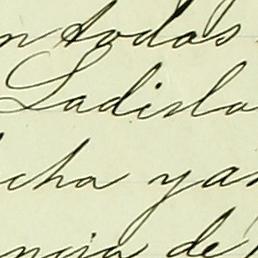 n todos
Ladisla
cha ya
ncia de